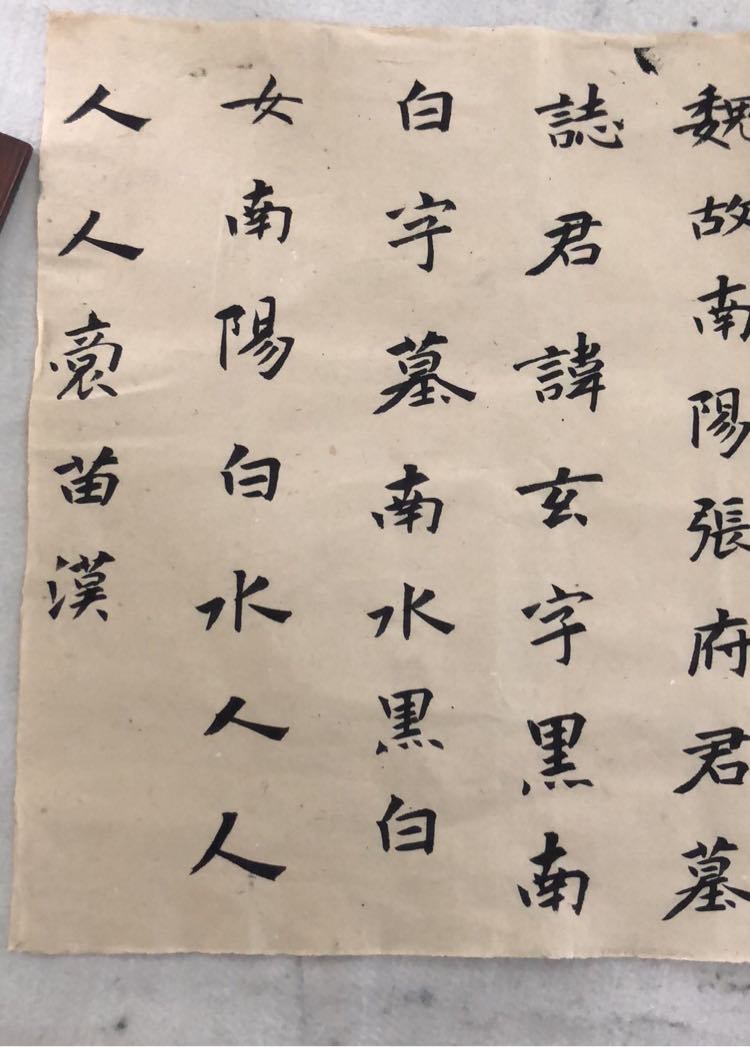 魏故南陽張府君墓
誌君諱玄字黑南
白字墓南水黑白
女南陽白水人人
人人裔苗漢